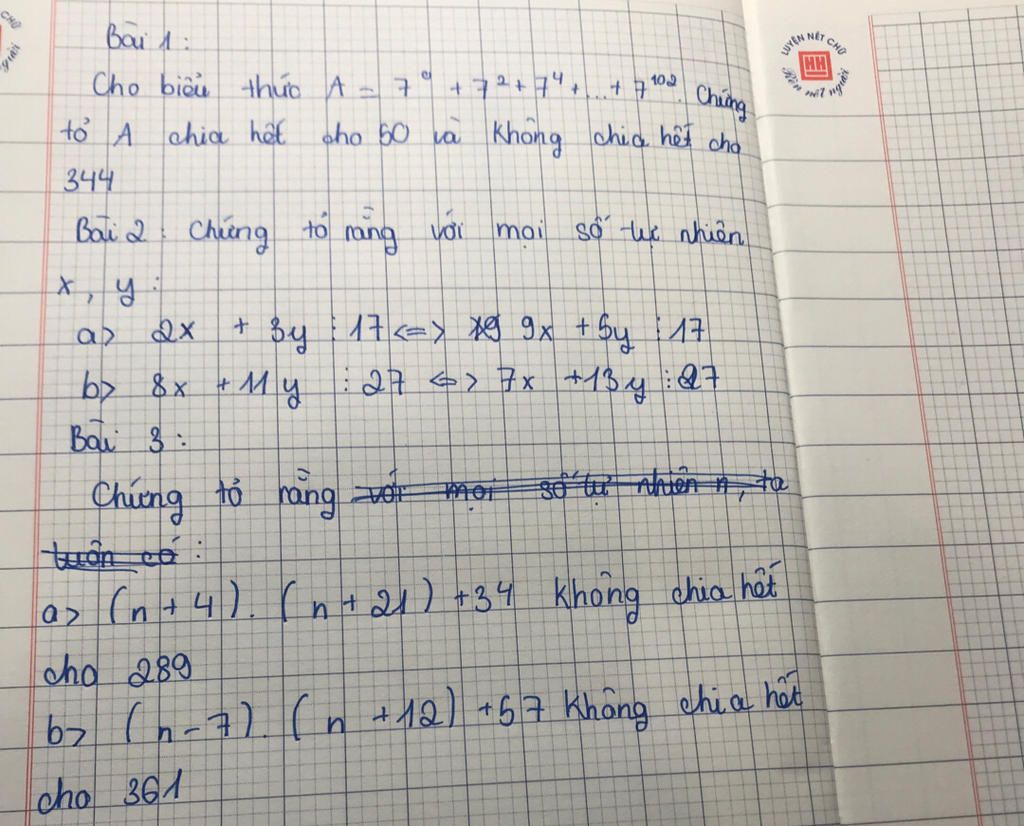 Bài 1:
Cho biểu thức A = 7⁰ + 7² + 7⁴ + ... + 7¹⁰². Chứng
tỏ A chia hết cho 50 và không chia hết cho
344
Bài 2: Chứng tỏ rằng với mọi số tự nhiên
x, y:
a> 2x + 3y ⋮ 17 <=> 9x + 5y ⋮ 17
b> 8x + 11y ⋮ 27 <=> 7x + 13y ⋮ 27
Bài 3:
Chứng tỏ rằng với mọi số tự nhiên n, ta
luôn có:
a> (n + 4). (n + 21) + 34 không chia hết
cho 289
b> (n - 7). (n + 12) + 57 không chia hết
cho 361
LUYỆN NÉT CHỮ
HH
Rèn nết người